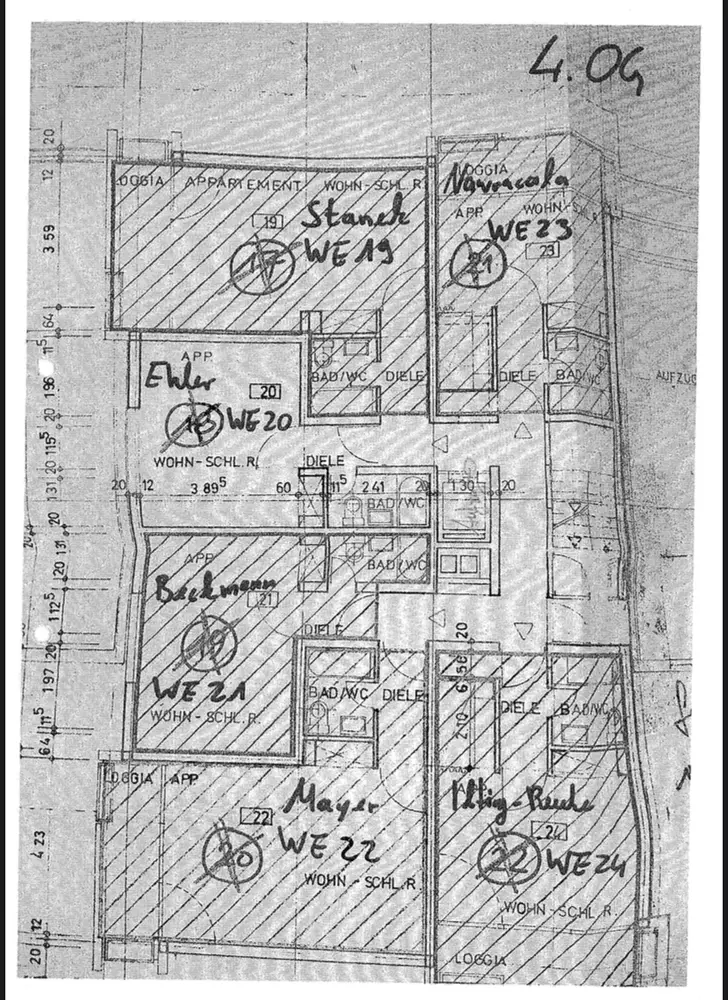 4. OG
LOGGIA APPARTEMENT WOHN-SCHL.R.
19
Stanek
17
WE 19
LOGGIA
APP. WOHN-S
WE 23
21
23
BAD/WC DIELE
DIELE BAD/WC
AUFZUG
APP.
Ehler
20
18
WE 20
WOHN-SCHL.R. DIELE
20 12 3 89⁵ 60 11⁵ 2 41 20 1 30 20
BAD/WC
APP.
BAD/WC
Beckmann
21
19
DIELE
WE 21
WOHN-SCHL.R.
BAD/WC DIELE
DIELE BAD/WC
LOGGIA APP.
22
Mayer
20
WE 22
WOHN-SCHL.R.
24
22
WE 24
WOHN-SCHL.R.
LOGGIA
20
12
3 59
64
11⁵
1 96
20
1 15⁵
20
1 31
20
1 31
20
1 12⁵
20
1 97
11⁵
64
4 23
12
20
20
56
6
2 10